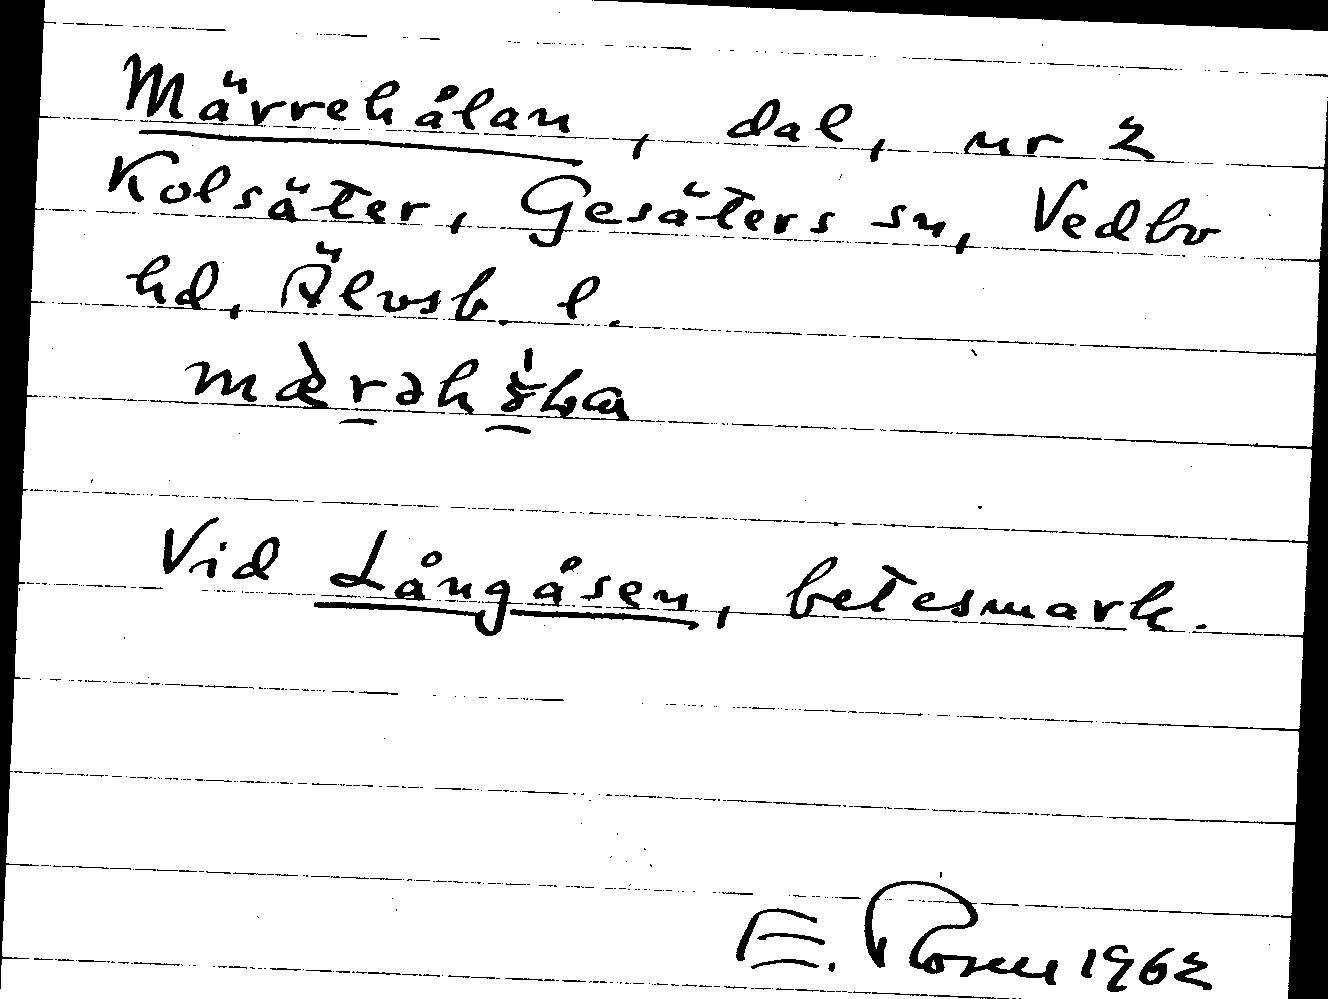 Märrehålan, dal, nr 2
Kolsäter, Gesäters sn, Vedbo
hd, Älvsb. l.
Vid Långåsen, betesmark.
E. Rosell 1962